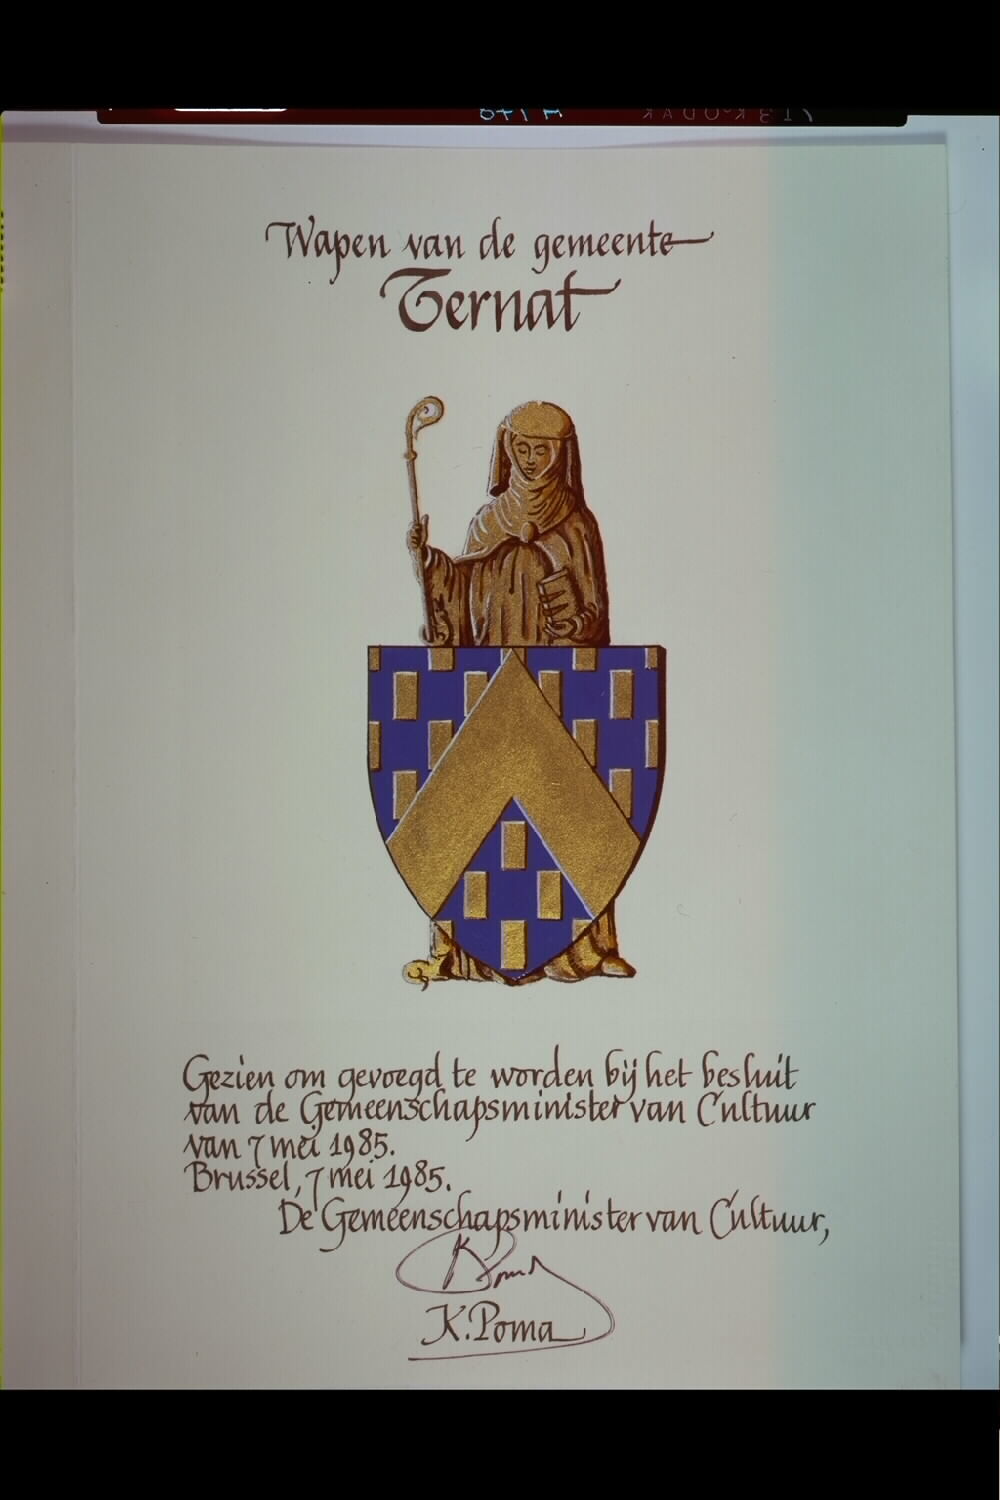 Wapen van de gemeente
Ternat
Gezien om gevoegd te worden bij het besluit
van de Gemeenschapsminister van Cultuur
van 7 mei 1985.
Brussel, 7 mei 1985.
De Gemeenschapsminister van Cultuur,
K. Poma